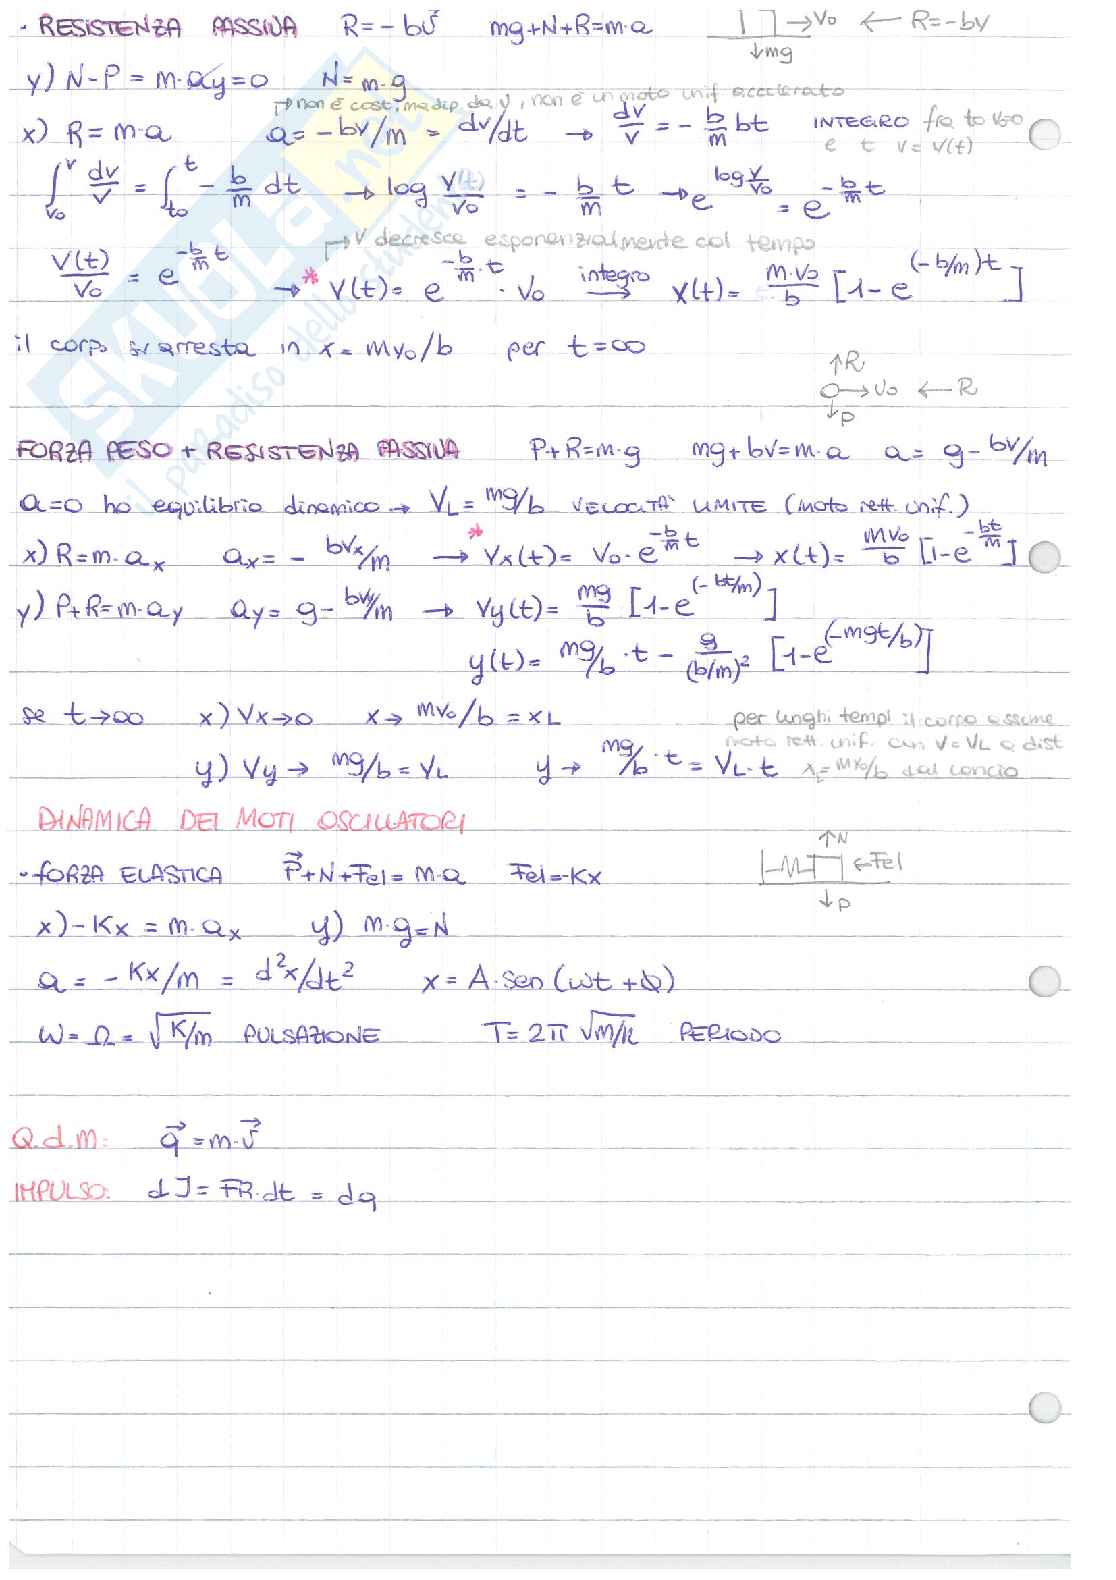 · RESISTENZA PASSIVA R=-bv⃗ mg+N+R=m·a →V₀ ← R=-bv
↓mg
y) N-P = m·ay=0 N=m·g
→ non è cost, ma dip. da v, non è un moto unif accelerato
x) R=m·a a=-bv/m = dv/dt → dv/v = -b/m bt INTEGRO fra to v=0
e t v=v(t)
∫v₀^v dv/v = ∫to^t -b/m dt → log v(t)/v₀ = -b/m t → e^(log v/v₀) = e^(-b/m t)
→ V decresce esponenzialmente col tempo
V(t)/V₀ = e^(-b/m t) →* V(t)= e^(-b/m·t)·V₀ integro → x(t)= m·v₀/b [1-e^((-b/m)t)]
il corpo si arresta in x=mv₀/b per t=∞
↑R
→V₀ ←R
↓P
FORZA PESO + RESISTENZA PASSIVA P+R=m·g mg+bv=m·a a= g-bv/m
a=0 ho equilibrio dinamico → VL=mg/b VELOCITÀ LIMITE (moto rett. unif.)
x) R=m·ax ax=-bvx/m →* Vx(t)= V₀·e^(-b/m t) → x(t)= mv₀/b [1-e^(-bt/m)]
y) P+R=m·ay ay=g-bvy/m → Vy(t)= mg/b [1-e^(-bt/m)]
y(t)= mg/b·t - g/(b/m)² [1-e^(-mgt/b)]
se t→∞ x) Vx→0 x→ mv₀/b = xL
per lunghi tempi il corpo assume
moto rett. unif. con V=VL a dist
y) Vy→ mg/b = VL y→ mg/b·t = VL·t xL=mv₀/b dal lancio
DINAMICA DEI MOTI OSCILLATORI
↑N
· FORZA ELASTICA P⃗+N+Fel=m·a Fel=-Kx ←Fel
↓P
x) -Kx = m·ax y) m·g=N
a = -Kx/m = d²x/dt² x = A·sen(ωt+φ)
ω=Ω=√K/m PULSAZIONE T=2π √m/k PERIODO
Q.d.m: q⃗=m·v⃗
IMPULSO: dJ= FR·dt = dq
SKUOLA.net
il paradiso dello studente